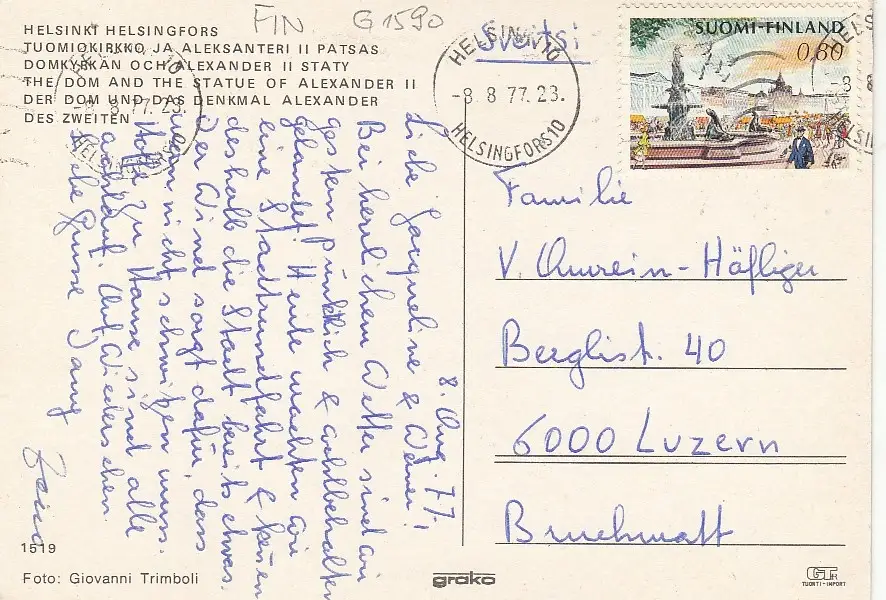 FIN G1590
HELSINKI HELSINGFORS
TUOMIOKIRKKO JA ALEKSANTERI II PATSAS
DOMKYSKAN OCH ALEXANDER II STATY
THE DOM AND THE STATUE OF ALEXANDER II
DER DOM UND DAS DENKMAL ALEXANDER
DES ZWEITEN
HELSINKI 10
-8. 8 77. 23.
HELSINGFORS 10
Sveitsi
HELSINKI 10
-8. 8 77. 23.
HELSINGFORS 10
SUOMI-FINLAND
0,80
8. Aug. 77,
Liebe Jacqueline & Werner!
Bei herrlichem Wetter sind wir
gestern pünktlich & wohlbehalten
gelandet. Heute machten wir
eine Stadtrundfahrt & kennen
deshalb die Stadt bereits etwas.
Der Wind sorgt dafür, dass
man nicht schwitzen muss.
zu Hause sind alle
Auf Wiedersehen.
Liebe Grüsse
Familie
V. Amrein-Häfliger
Berglist. 40
6000 Luzern
Bruchmatt
1519
Foto: Giovanni Trimboli
grako
GT
TUONTI-IMPORT